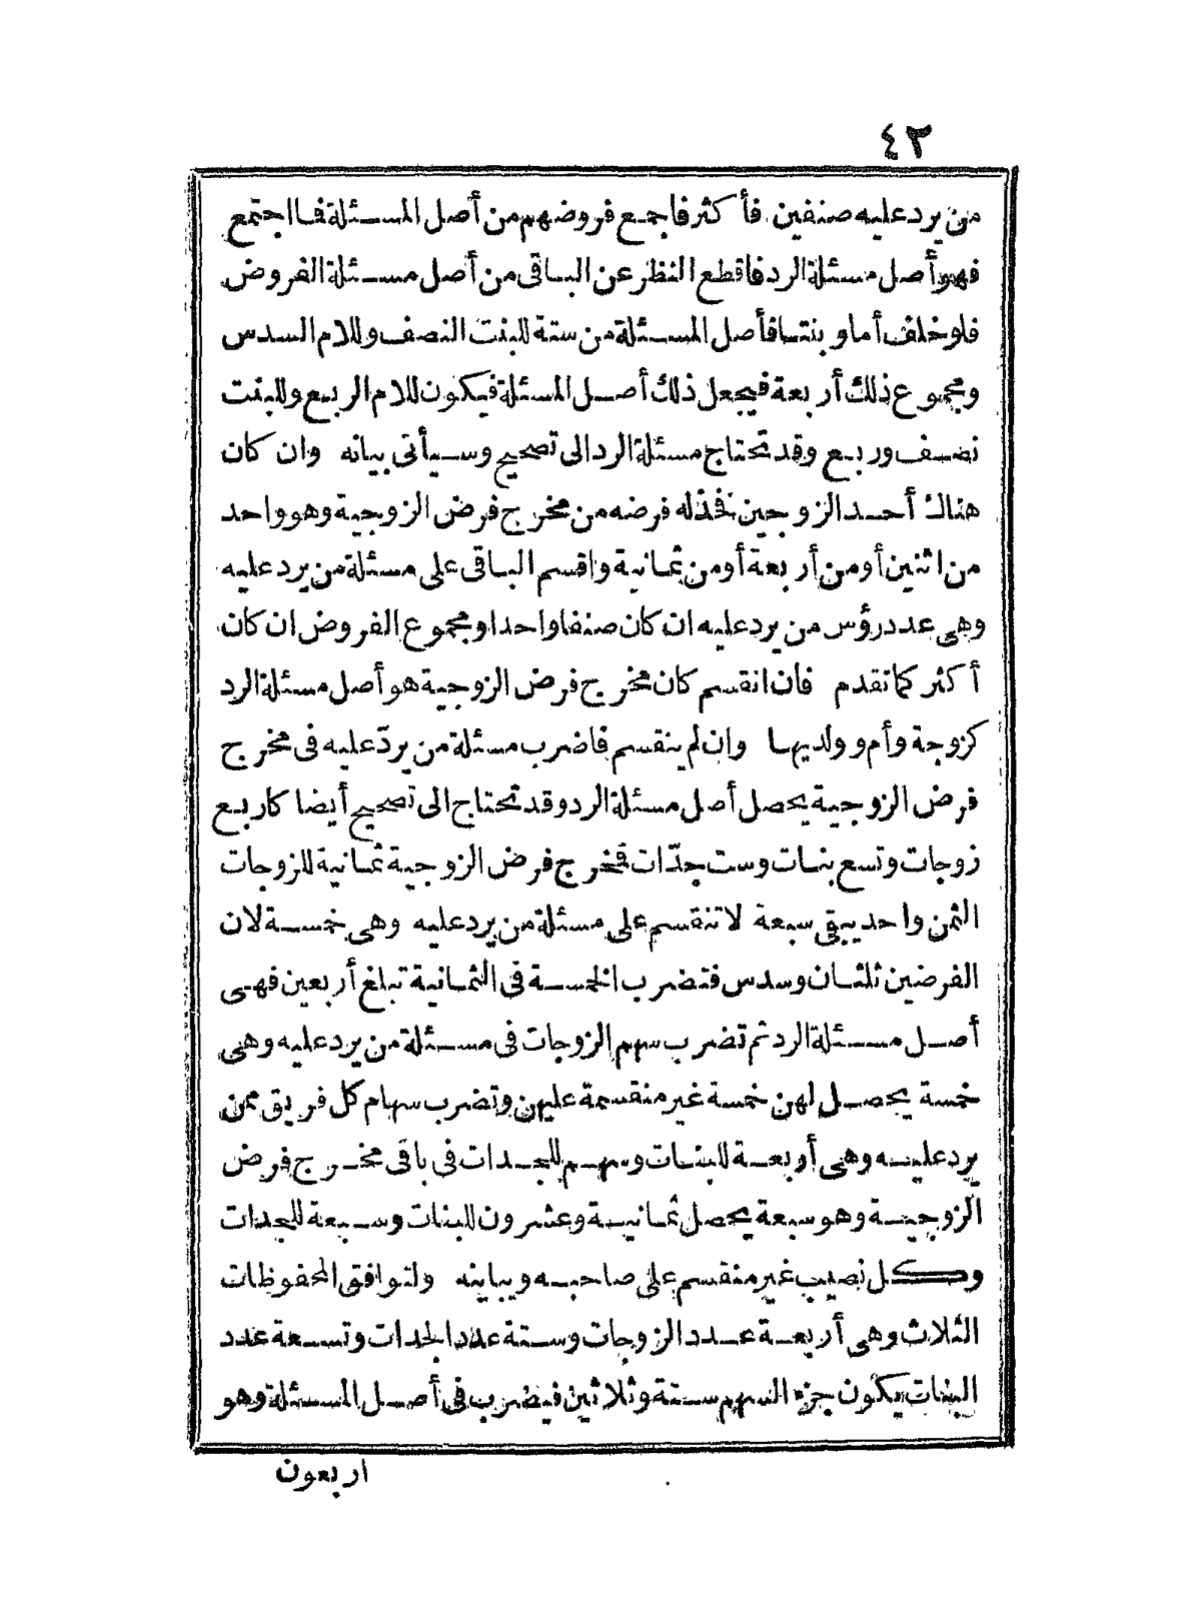 ٤٢
من يرد عليه صنفين فأكثر فاجمع فروضهم من أصل المسئلة فما اجتمع
فهو أصل مسئلة الرد فاقطع النظر عن الباقى من أصل مسئلة الفروض
فلو خلف أما وبنتا فأصل المسئلة من ستة للبنت النصف وللام السدس
ومجموع ذلك أربعة فيجعل ذلك أصل المسئلة فيكون للام الربع وللبنت
نصف وربع وقد تحتاج مسئلة الرد الى تصحيح وسيأتى بيانه وان كان
هناك أحد الزوجين فخذ له فرضه من مخرج فرض الزوجية وهو واحد
من اثنين أو من أربعة أو من ثمانية واقسم الباقى على مسئلة من يرد عليه
وهى عدد رؤس من يرد عليه ان كان صنفا واحدا ومجموع الفروض ان كان
أكثر كما تقدم فان انقسم كان مخرج فرض الزوجية هو أصل مسئلة الرد
كزوجة وأم وولديها وان لم ينقسم فاضرب مسئلة من يردّ عليه فى مخرج
فرض الزوجية يحصل أصل مسئلة الرد وقد تحتاج الى تصحيح أيضا كاربع
زوجات وتسع بنات وست جدّات فمخرج فرض الزوجية ثمانية للزوجات
الثمن واحد يبقى سبعة لا تنقسم على مسئلة من يرد عليه وهى خمسة لان
الفرضين ثلثان وسدس فتضرب الخمسة فى الثمانية تبلغ أربعين فهى
أصل مسئلة الرد ثم تضرب سهم الزوجات فى مسئلة من يرد عليه وهى
خمسة يحصل لهن خمسة غير منقسمة عليهن وتضرب سهام كل فريق ممن
يرد عليه وهى أربعة للبنات وسهم للجدات فى باقى مخرج فرض
الزوجية وهو سبعة يحصل ثمانية وعشرون للبنات وسبعة للجدات
وكل نصيب غير منقسم على صاحبه ويباينه ولتوافق المحفوظات
الثلاث وهى أربعة عدد الزوجات وستة عدد الجدات وتسعة عدد
البنات يكون جزء السهم ستة وثلاثين فيضرب فى أصل المسئلة وهو
اربعون